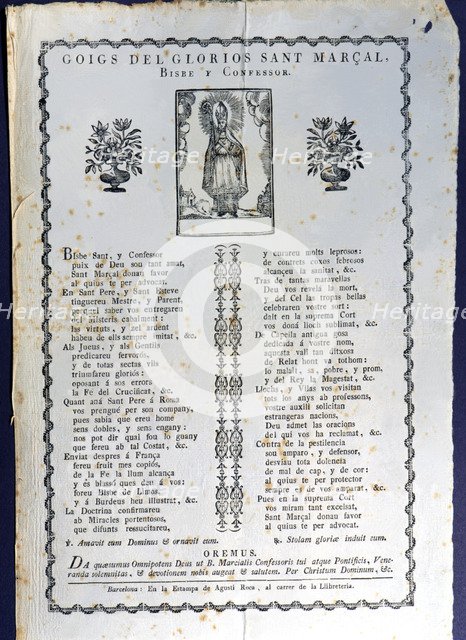 GOIGS DEL GLORIOS SANT MARÇAL,
BISBE Y CONFESSOR.
BIsbe Sant, y Confessor
puix de Deu son tant amat,
Sant Marçal donau favor
al quius te per advocat.
En Sant Pere, y Sant Esteve
tinguereu Mestre, y Parent,
saber vos entregaren
misteris cabalment:
las virtuts, y zel ardent
habeu de ells sempre imitat, &c.
Als Jueus, y als Gentils
predicareu fervorós,
y de totas sectas vils
triumfareu gloriós:
oposant á sos errors
la Fe del Crucificat, &c.
Quant aná Sant Pere á Roma
vos prengué per son company,
pues sabia que ereu home
sens dobles, y sens engany:
nos pot dir quai fou lo guany
que fereu ab tal Costat, &c.
Enviat despres á França
fereu fruit mes copiós,
de la Fe la llum alcança
y és bissó ques dau á vos:
foreu Bisbe de Limos,
y á Burdeus heu illustrat, &c.
La Doctrina confirmareu
ab Miracles portentosos,
que difunts ressucitareu,
y curareu molts leprosos:
de contrets coxos febrosos
alcançeu la sanitat, &c.
Tras de tantas maravellas
Deu vos revela la mort,
y del Cel las tropas bellas
celebraren vostre sort:
dalt en la suprema Cort
vos doná lloch sublimat, &c.
De Capella antigua gosa
dedicada á vostre nom,
aquesta vall tan ditxosa
de Relat hont va tothom:
lo malalt, sa, pobre, y prom,
y del Rey la Magestat, &c.
Llochs, y Vilas vos visitan
tots los anys ab professons,
vostre auxili solicitan
estrangeras nacions,
Deu admet las oracions
del qui vos ha reclamat, &c.
Contra de la pestilencia
sou amparo, y defensor,
desviau tota dolencia
de mal de cap, y de cor:
al quius te per protector
sempre es de vos amparat, &c.
Pues en la suprema Cort
vos miram tant excelsat,
Sant Marçal donau favor
al quius te per advocat.
℣. Amavit eum Dominus & ornavit eum. ℟. Stolam gloriæ induit eum.
OREMUS.
DA quæsumus Omnipotens Deus ut B. Marcialis Confessoris tui atque Pontificis, Vene-
randa solemnitas, & devotionem nobis augeat & salutem. Per Christum Dominum, &c.
Barcelona: En la Estampa de Agustí Roca, al carrer de la Llibreteria.